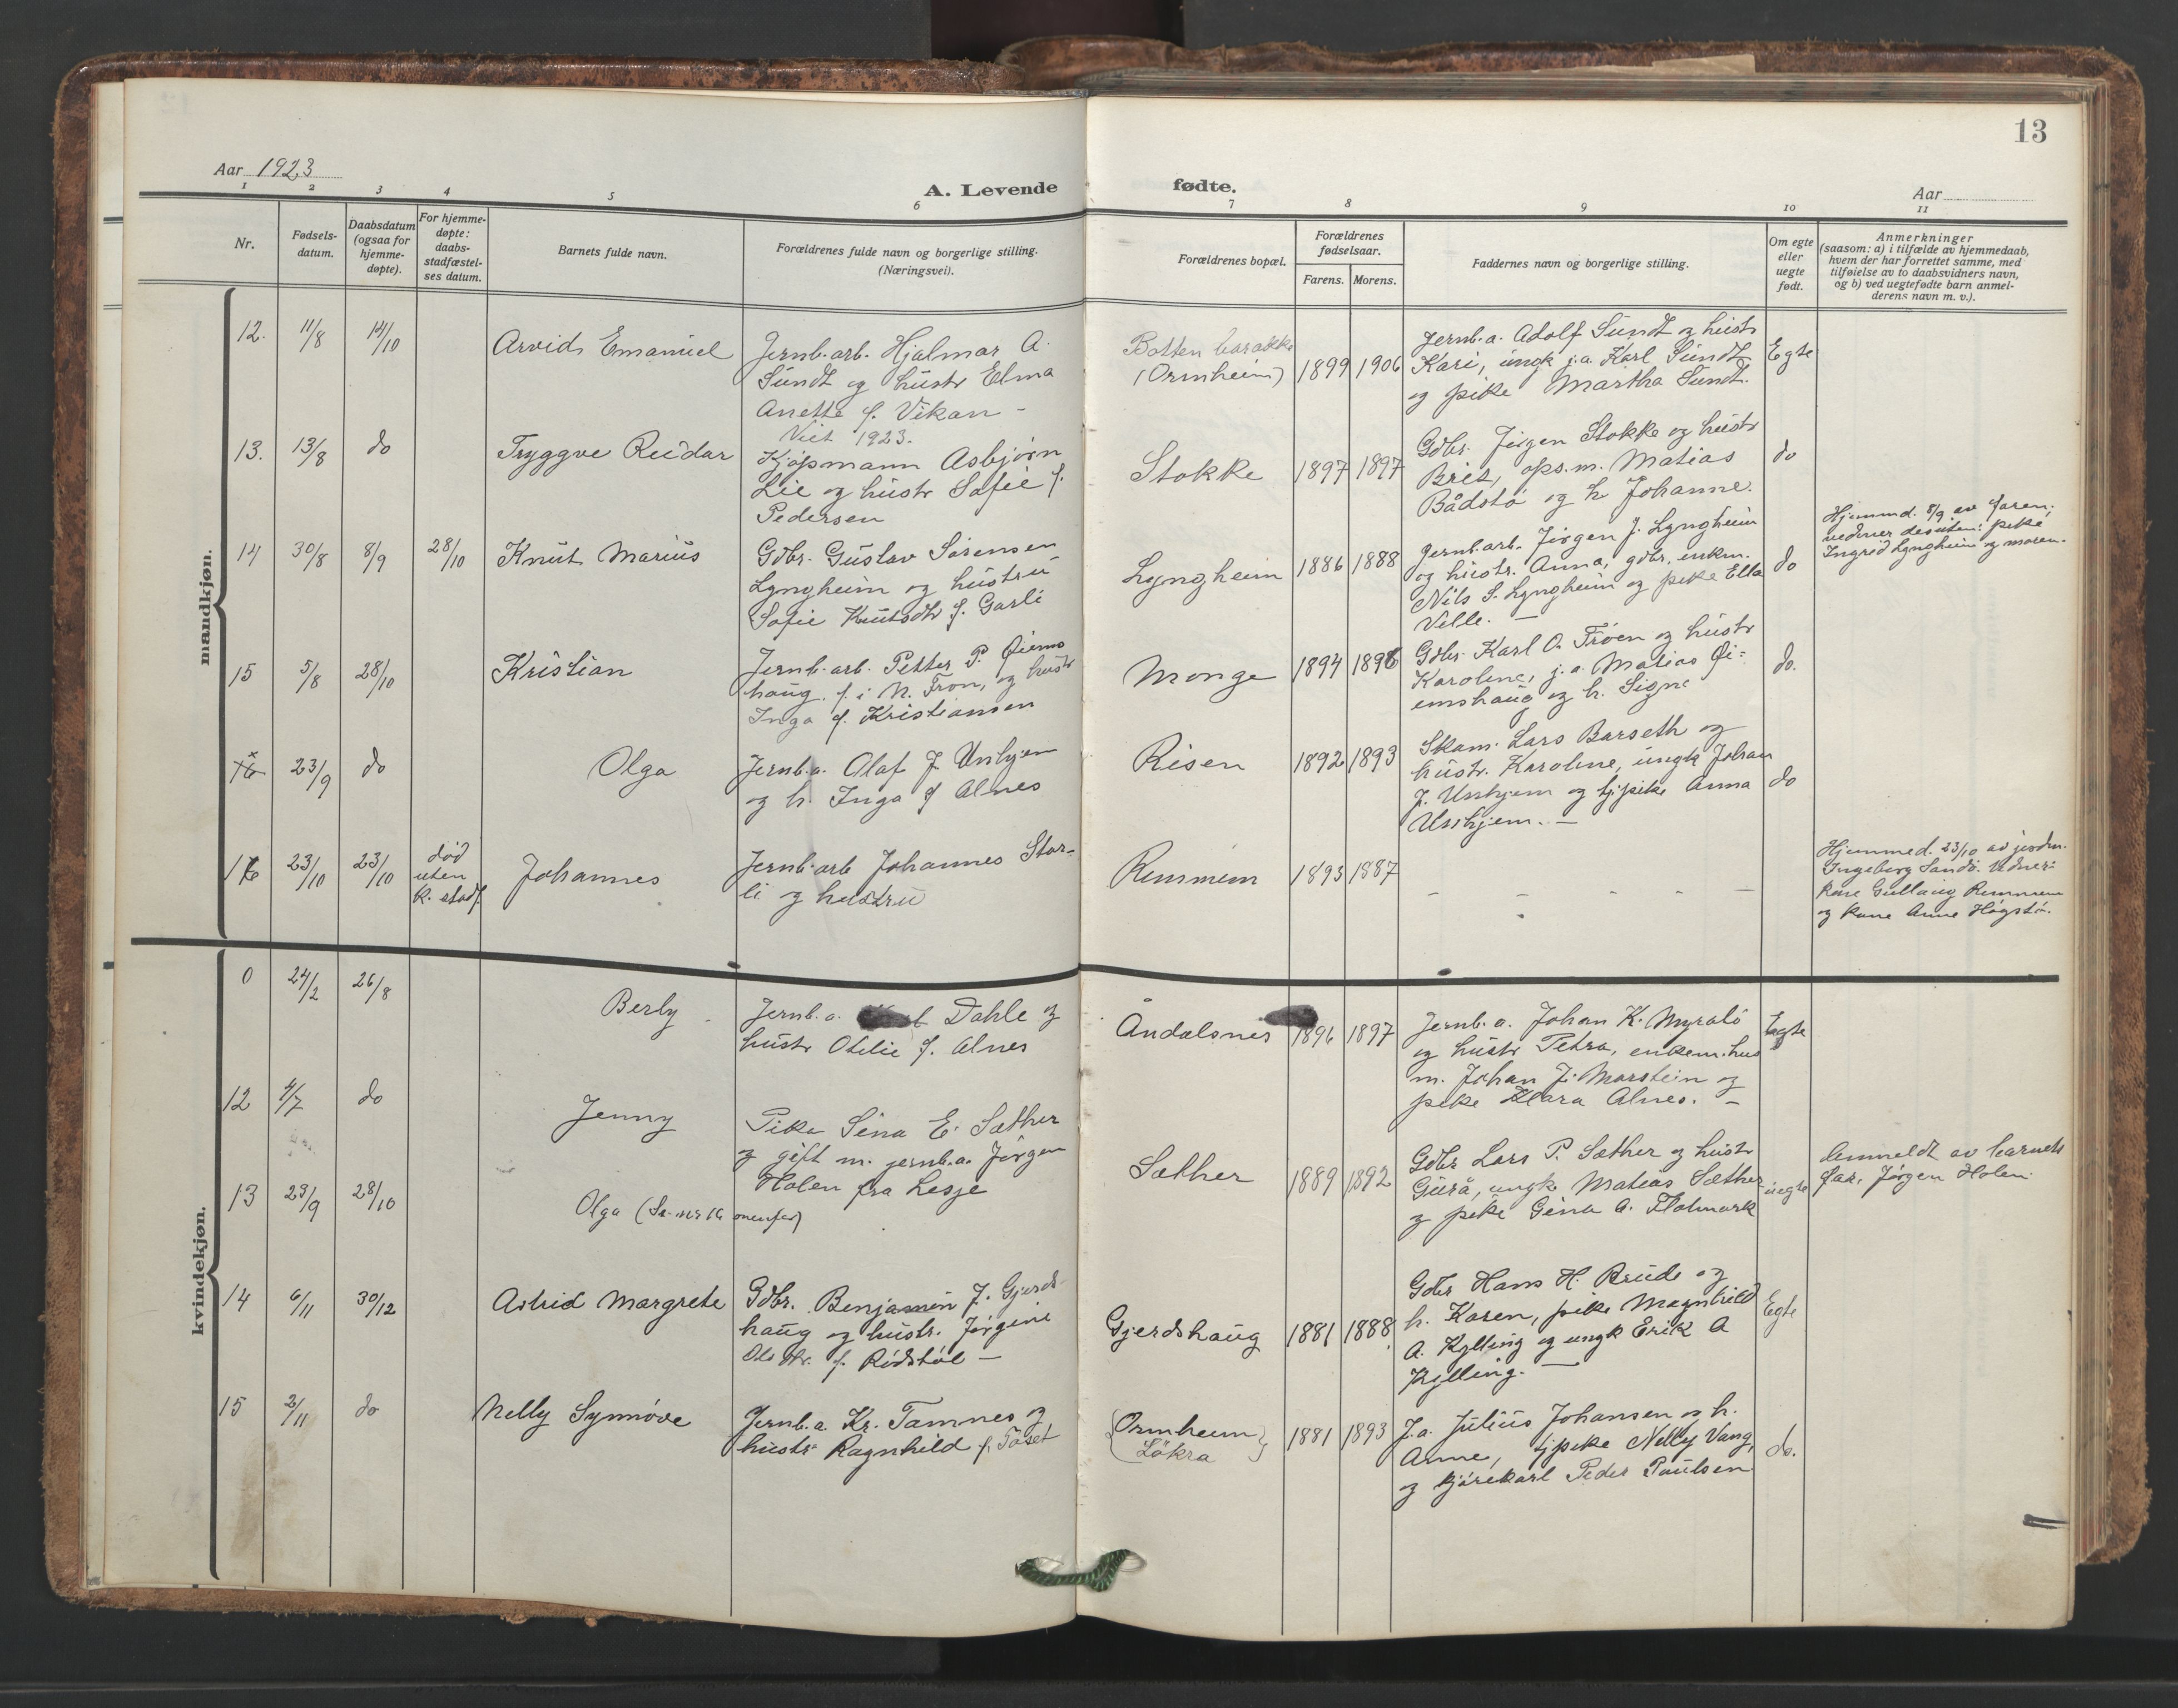 13
Aar 1923
A. Levende
fødte.
Aar
1 2 3 4 5 6 7 8 9 10 11
Nr.
Fødsels-
datum.
Daabsdatum
(ogsaa for
hjemme-
døpte).
For hjemme-
døpte:
daabs-
stadfæstel-
ses datum.
Barnets fulde navn.
Forældrenes fulde navn og borgerlige stilling.
(Næringsvei).
Forældrenes bopæl.
Forældrenes
fødselsaar.
Farens. Morens.
Faddernes navn og borgerlige stilling.
Om egte
eller
uegte
født.
Anmerkninger
(saasom: a) i tilfælde av hjemmedaab,
hvem der har forrettet samme, med
tilføielse av to daabsvidners navn,
og b) ved uegtefødte barn anmel-
derens navn m. v.).
mandkjøn.
12. 11/8 14/10
Arvid Emanuel
Jernb.arb. Hjalmar A.
Sundt og hustr Elma
Anette f. Vikan -
Viet 1923.
Botten barakke
(Ormheim)
1899 1906
Jernb.a. Adolf Sundt og hustr
Kari, ungk j.a. Karl Sundt
og pike Martha Sundt.
Egte
13. 13/8 do
Tryggve Reidar
Kjøpmann Asbjørn
Lie og hustr Sofie f.
Pedersen
Stokke
1897 1897
Gdbr. Jørgen Stokke og hustr
Brit, ops.m. Matias
Bådstø og h. Johanne.
do
14 30/8 8/9 28/10
Knut Marius
Gdbr. Gustav Sørensen
Lyngheim og hustru
Sofie Knutsdtr f. Garli
Lyngheim
1886 1888
Jernb.arb. Jørgen J. Lyngheim
og hustr. Anna, gdbr. enkm.
Nils S. Lyngheim og pike Ella
Velle. -
do
Hjemmd. 8/9 av faren.
vedner desuten: pike
Ingrid Lyngheim og moren.
15 5/8 28/10
Kristian
Jernb.arb. Petter P. Øiems
haug f. i N. Fron, og hustr
Inga f. Kristiansen
Monge
1894 1898
Gdbr. Karl O. Trøen og hustr
Karoline, j.a. Matias Øi-
emshaug og h. Signe
do.
16 23/9 do
Olga
Jernb.a. Olaf J. Unhjem
og h. Inga f Alnes
Risen
1892 1893
Skom. Lars Barseth og
hustr. Karoline, ungk Johan
J. Unhjem og tj.pike Anna
Unhjem. -
do
16 23/10 23/10
død
uten
k. stadf.
Johannes
Jernb.arb Johannes Stor-
li og hustru
Remmem
1893 1887
- - - - -
Hjemmed. 23/10 av jordm.
Ingeborg Sandø. Vedner:
kone Gullaug Remmem
og kone Anne Høgstø.
kvindekjøn.
0 24/2 26/8
Berly
Jernb.a. Dahle og
hustr Otilie f. Alnes
Åndalsnes
1896 1897
Jernb.a. Johan K. Myrabø
og hustr Petra, enkem. hus
m. Johan J. Marstein og
pike Klara Alnes. -
Egte
12 4/7 do
Jenny
Pike Sina E. Sæther
og gift m. jernb.a. Jørgen
Holen fra Lesje
Sæther
1889 1892
Gdbr Lars P. Sæther og hustr
Gurå, ungk Matias Sæther
og pike Gina A. Flatmark
uegte
Anmeldt av barnets
far, Jørgen Holen.
13 23/9 28/10
Olga (Se nr 16 ovenfor)
14 6/11 30/12
Astrid Margrete
Gdbr. Benjamin J. Gjerds-
haug og hustr. Jørgine
Olsdtr. f. Rødstøl -
Gjerdshaug
1881 1888
Gdbr Hans H. Brude og
h. Karen, pike Magnhild
A. Kylling og ungk Erik A
Kylling. -
Egte
15 2/11 do
Nelly Synnøve
Jernb.a. Kr. Tamnes og
hustr Ragnhild f. Tøset
(Ormheim)
Løkra
1881 1893
J.a. Julius Johansen og h.
Anne, tj.pike Nelly Vang,
og kjørekarl Peder Paulsen
do.